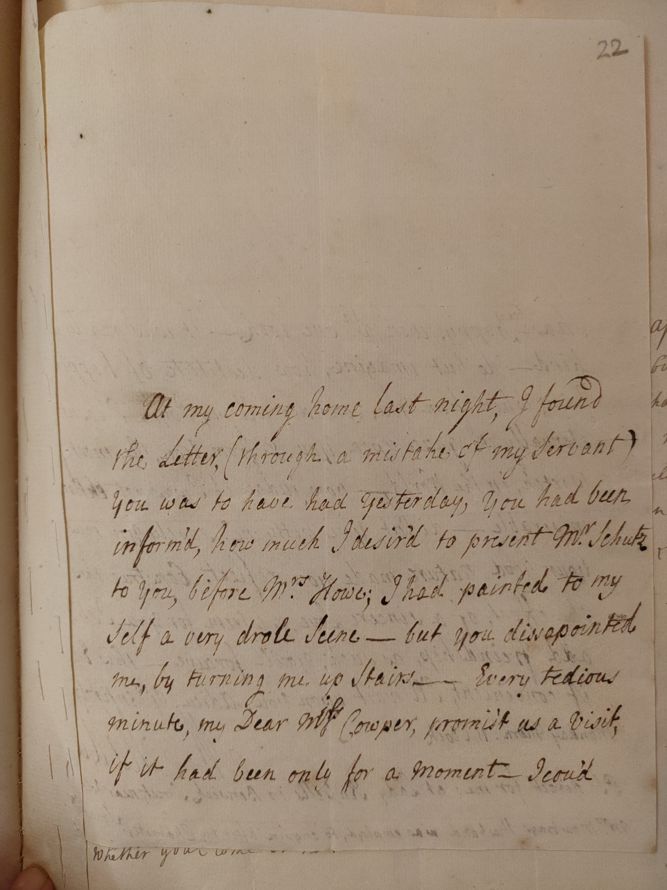 22
At my coming home last night, I found
the Letter, (through a mistake of my Servant)
you was to have had yesterday, you had been
inform'd, how much I desir'd to present Mr. Schutz
to you, before Mrs Howe; I had painted to my
Self a very drole Scene — but you dissapointed
me, by turning me up Stairs — Every tedious
minute, my Dear Miss Cowper, promis't us a Visit,
if it had been only for a Moment — I cou'd
Whether you come